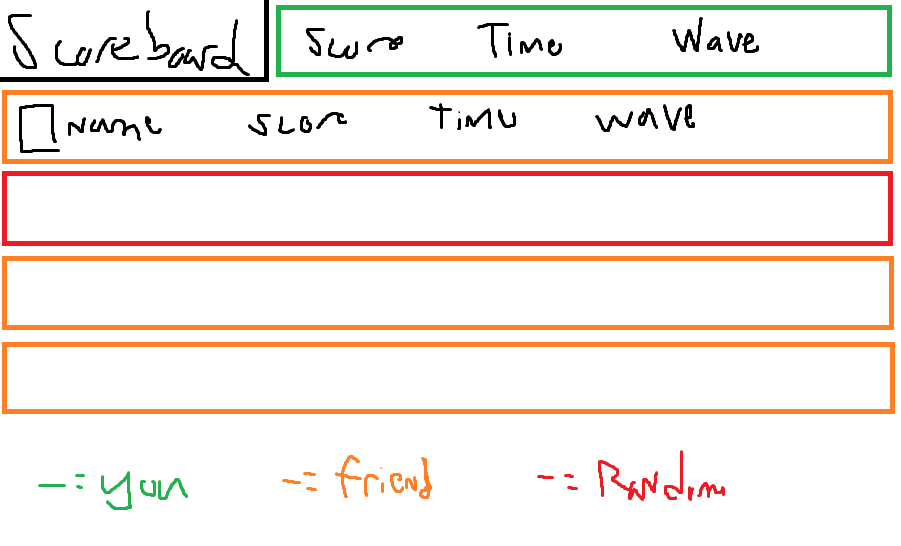 Scoreboard Score Time Wave
Name score Time wave
-= you -= friend -= Random